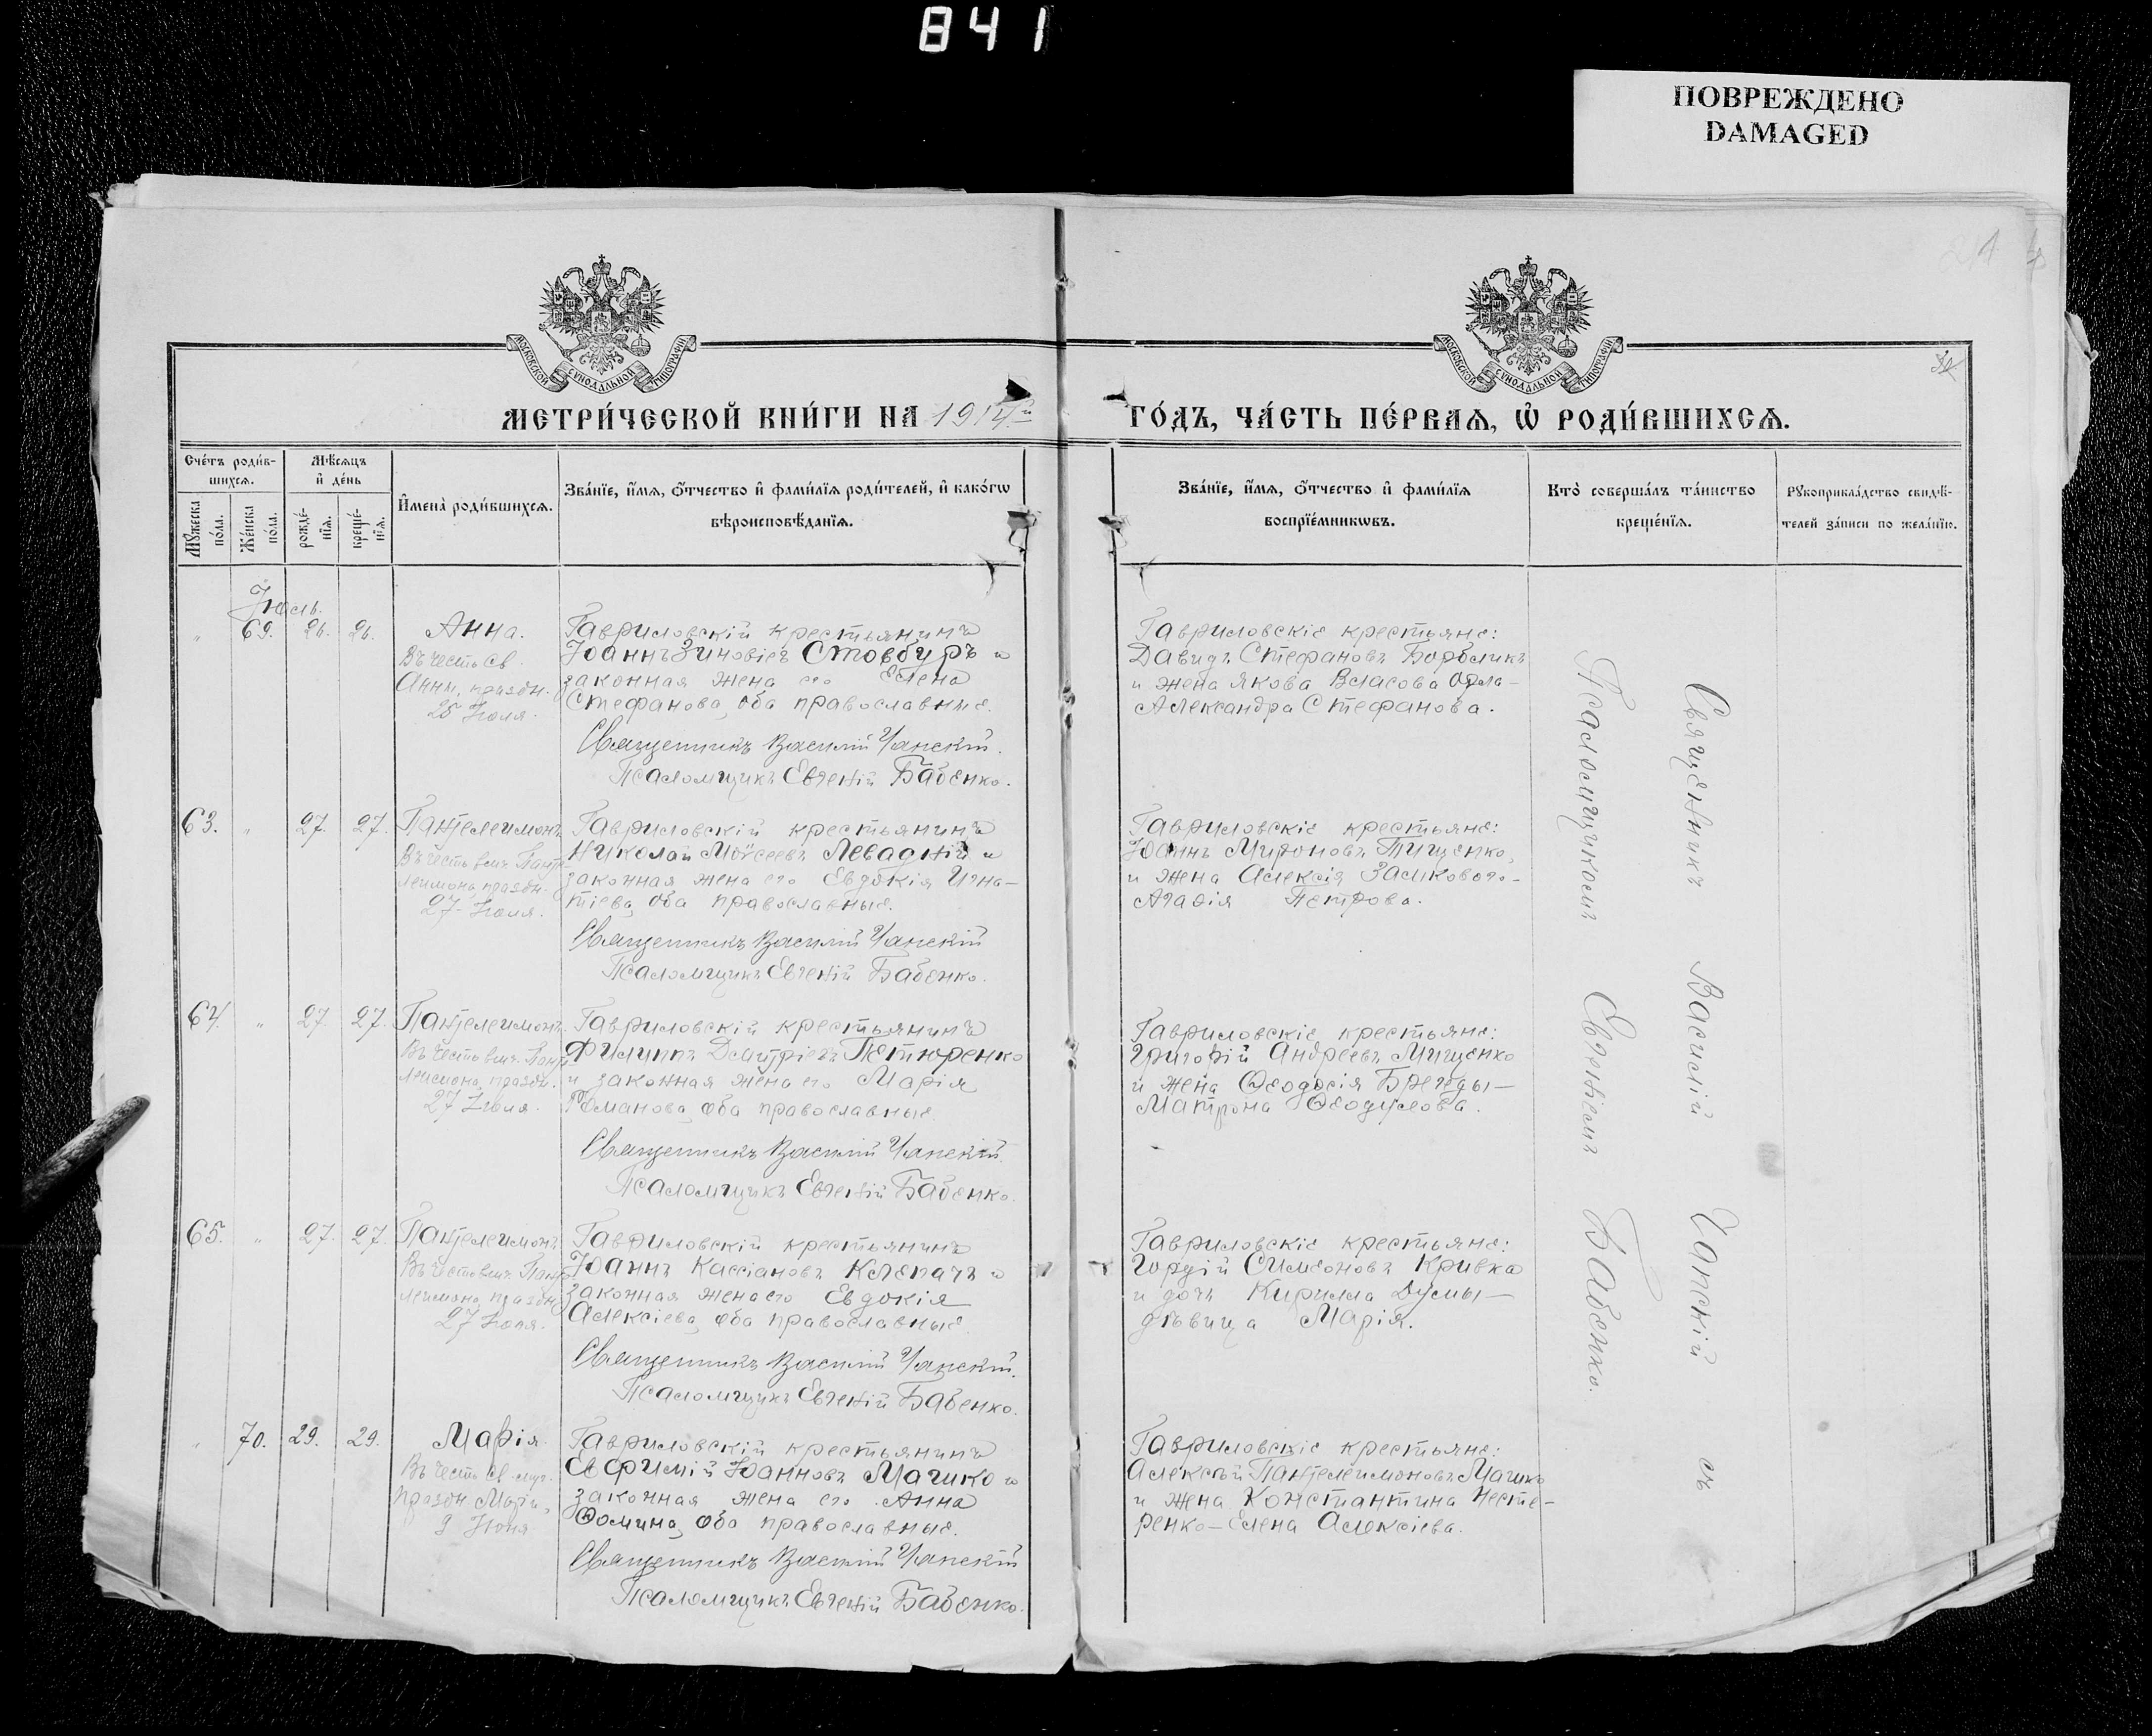 841
ПОВРЕЖДЕНО
DAMAGED
МОСКОВСКОЙ СѴНОДАЛЬНОЙ ТИПОГРАФІИ
МОСКОВСКОЙ СѴНОДАЛЬНОЙ ТИПОГРАФІИ
МЕТРИ́ЧЕСКОЙ КНИ́ГИ НА 1914й ГО́ДЪ, ЧА́СТЬ ПЕ́РВАѦ, Ѡ҆ РОДИ́ВШИХСѦ.
Сче́тъ роди́в-
шихсѧ.
Мꙋ́жеска по́ла.
Же́нска по́ла.
Мѣ́сѧцъ
и҆ де́нь
рожде́-
нїѧ.
креще́-
нїѧ.
И҆мена̀ роди́вшихсѧ.
Зва́нїе, и҆́мѧ, ѻ҆́тчество и҆ фами́лїѧ роди́телей, и҆ како́гѡ
вѣроисповѣ́данїѧ.
Зва́нїе, и҆́мѧ, ѻ҆́тчество и҆ фами́лїѧ
воспрїе́мникѡвъ.
Кто̀ соверша́лъ та́инство
креще́нїѧ.
Рꙋкоприкла́дство свидѣ́-
телей за́писи по жела́нїю.
Іюль.
„ 69. 26. 26.
Анна.
Въ честь св.
Анны, праздн.
25 Іюля.
Гавриловскій крестьянинъ
Іоаннъ Зиновіевъ Стовбуръ и
законная жена его Елена
Стефанова, оба православные.
Священникъ Василій Чапскій.
Псаломщикъ Евгеній Бабенко.
Гавриловскіе крестьяне:
Давидъ Стефановъ
и жена Якова Власова Орла-
Александра Стефанова.
63. „ 27. 27.
Пантелеимонъ.
Въ честь вмч. Панте
леимона, праздн.
27 Іюля.
Гавриловскій крестьянинъ
Николай Моѵсеевъ Левадній и
законная жена его Евдокія Игна-
тіева, оба православные.
Священникъ Василій Чапскій
Псаломщикъ Евгеній Бабенко.
Гавриловскіе крестьяне:
Іоаннъ Мироновъ Тищенко,
и жена Алексія
Агафія Петрова.
64. „ 27 27.
Пантелеимонъ.
Въ честь вмч. Панте
леимона, праздн.
27 Іюля.
Гавриловскій крестьянинъ
Филиппъ Димитріевъ Петюренко
и законная жена его Марія
Романова, оба православные.
Священникъ Василій Чапскій.
Псаломщикъ Евгеній Бабенко.
Гавриловскіе крестьяне:
Григорій Андреевъ Мищенко
и жена Ѳеодосія
Матрона Ѳеодулова.
65. „ 27. 27.
Пантелеимонъ
Въ честь вмч. Панте
леимона, праздн.
27 Іюля.
Гавриловскій крестьянинъ
Іоаннъ Кассіановъ Клепачъ и
законная жена его Евдокія
Алексіева, оба православные.
Священникъ Василій Чапскій.
Псаломщикъ Евгеній Бабенко.
Гавриловскіе крестьяне:
Гордій Симеоновъ Кривка
и дочь Кирилла Думы-
дѣвица Марія.
„ 70. 29. 29.
Марія
Въ честь св. муч.
праздн.
9 Іюня
Гавриловскій крестьянинъ
Евфимій Іоанновъ Мачико и
законная жена его Анна
Ѳомина, оба православные.
Священникъ Василій Чапскій
Псаломщикъ Евгеній Бабенко.
Гавриловскіе крестьяне:
Алексѣй Пантелеимоновъ Мачико
и жена Константина Несте-
ренко-Елена Алексіева.
Священникъ Василій Чапскій съ
Псаломщикомъ Евгеніемъ Бабенко.